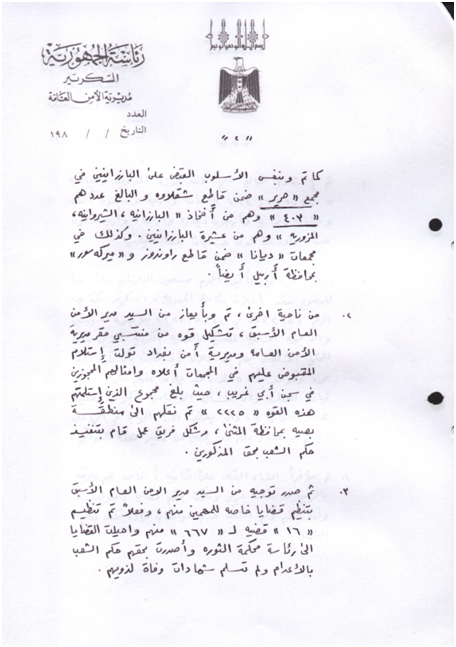 رئاسة الجمهورية
السكرتير
مديرية الأمن العامة
العدد
التاريخ / / ١٩٨
« ٢ »
كما تم وبنفس الأسلوب القبض على البارزانيين في
مجمع « حرير » ضمن قاطع شقلاوه و البالغ عددهم
« ٤٠٣ » وهم من أفخاذ « البارزانيه ، الشيروانيه ،
المزوريه » وهم من عشيرة البارزانيين . وكذلك في
مجمعات « ديانا » ضمن قاطع راوندوز و « ميركه سور »
بمحافظة أربيل أيضاً .
٢. من ناحية اخرى ، تم و بأيعاز من السيد مدير الأمن
العام الأسبق ، تشكيل قوه من منتسبي مقر مديرية
الأمن العامه ومديرية أمن بغداد تولت إستلام
المقبوض عليهم في المجمعات أعلاه وامثالهم المحجوزين
في سجن أبي غريب ، حيث بلغ مجموع الذين إستلمتهم
هذه القوه « ٢٢٢٥ » تم نقلهم الى منطقة
بصيه بمحافظة المثنى ، وشكل فريق عمل قام بتنفيذ
حكم الشعب بحق المذكورين .
٣. ثم صدر توجيه من السيد مدير الامن العام الأسبق
بتنظيم قضايا خاصه للمهمين منهم ، وفعلاً تم تنظيم
« ١٦ » قضيه لـ « ٦٦٧ » منهم واحيلت القضايا
الى رئاسة محكمة الثوره و أصدرت بحقهم حكم الشعب
بالأعدام ولم تسلم شهادات وفاة لذويهم .